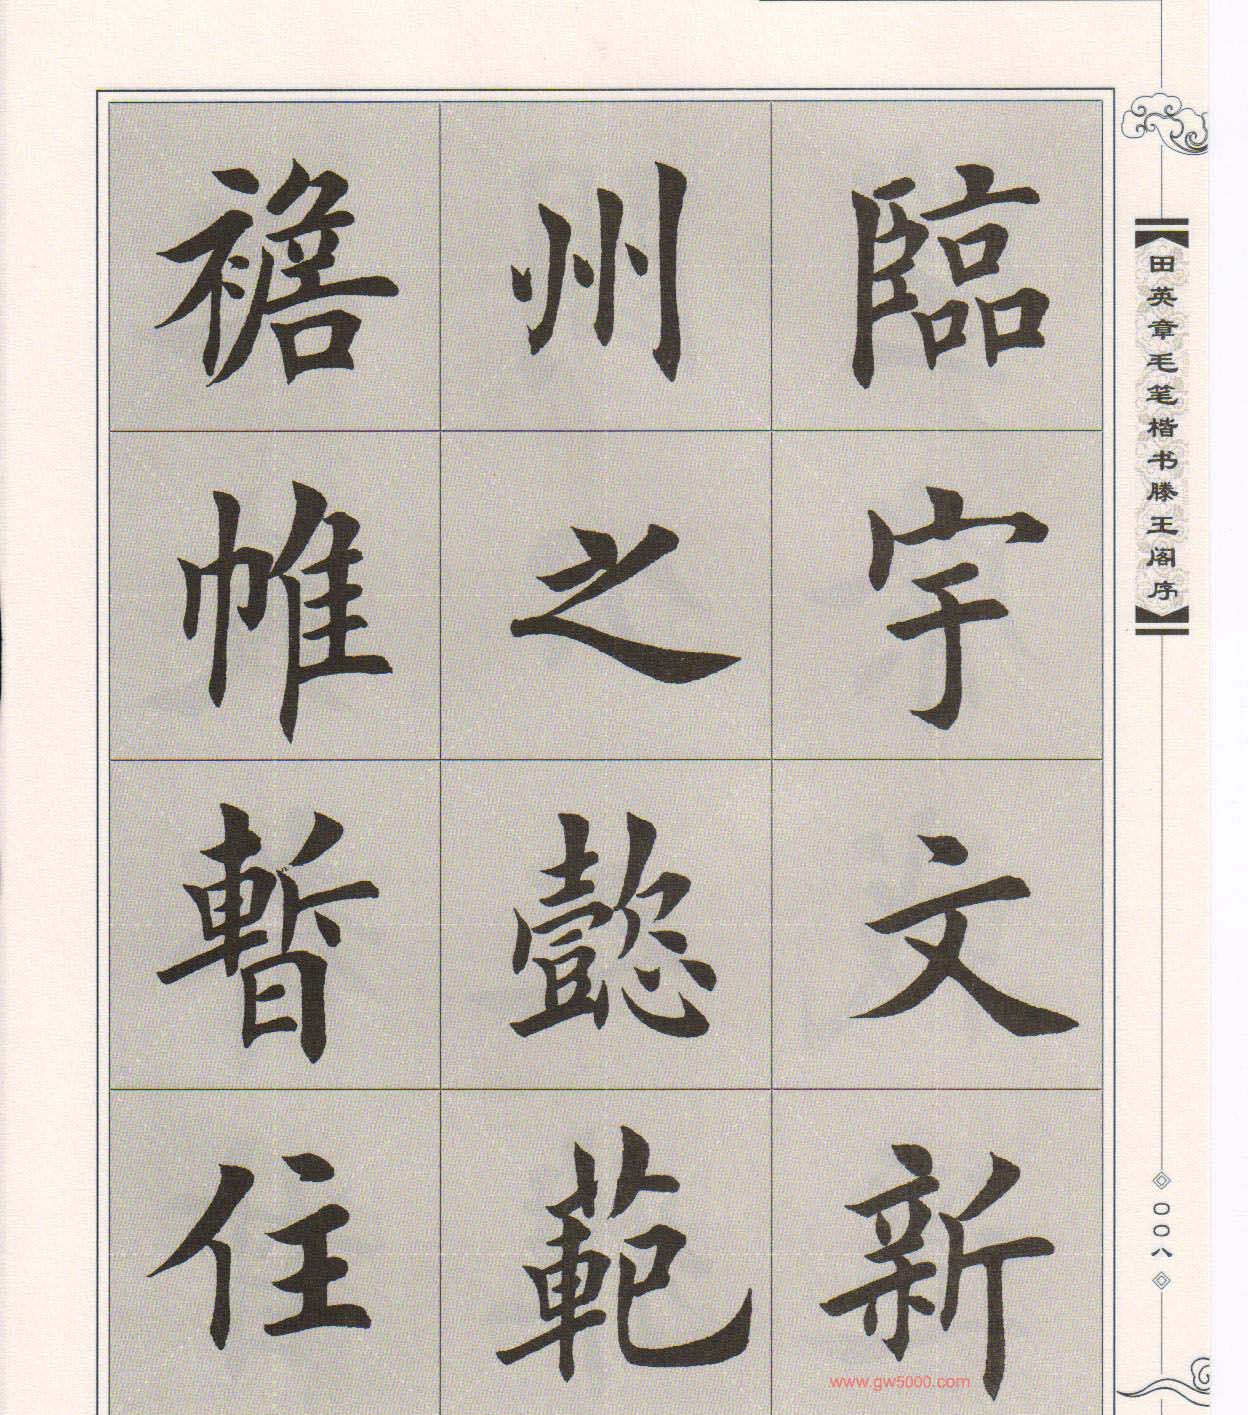 臨宇文新
州之懿範
襜帷暫住
田英章毛笔楷书滕王阁序
〇〇八
www.gw5000.com